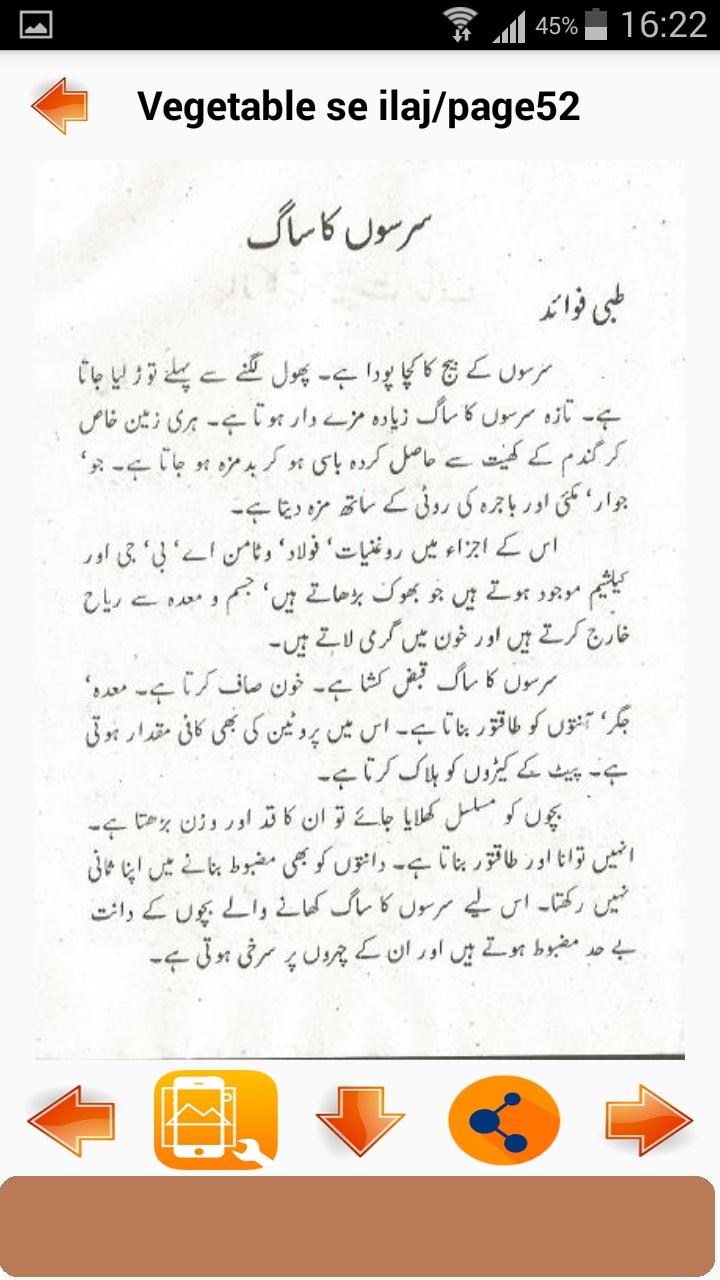 45% 16:22
Vegetable se ilaj/page52
سرسوں کا ساگ
طبی فوائد
سرسوں کے بیج کا کچا پودا ہے۔ پھول لگنے سے پہلے توڑ لیا جاتا
ہے۔ تازہ سرسوں کا ساگ زیادہ مزے دار ہوتا ہے۔ ہری زمین خاص
کر گندم کے کھیت سے حاصل کردہ باسی ہو کر بدمزہ ہو جاتا ہے۔ جو‘
جوار‘ مکئی اور باجرہ کی روٹی کے ساتھ مزہ دیتا ہے۔
اس کے اجزاء میں روغنیات‘ فولاد‘ وٹامن اے‘ بی‘ جی اور
کیلشیم موجود ہوتے ہیں جو بھوک بڑھاتے ہیں‘ جسم و معدہ سے ریاح
خارج کرتے ہیں اور خون میں گرمی لاتے ہیں۔
سرسوں کا ساگ قبض کشا ہے۔ خون صاف کرتا ہے۔ معدہ‘
جگر‘ آنتوں کو طاقتور بناتا ہے۔ اس میں پروٹین کی بھی کافی مقدار ہوتی
ہے۔ پیٹ کے کیڑوں کو ہلاک کرتا ہے۔
بچوں کو مسلسل کھلایا جائے تو ان کا قد اور وزن بڑھتا ہے۔
انہیں توانا اور طاقتور بناتا ہے۔ دانتوں کو بھی مضبوط بنانے میں اپنا ثانی
نہیں رکھتا۔ اس لیے سرسوں کا ساگ کھانے والے بچوں کے دانت
بے حد مضبوط ہوتے ہیں اور ان کے چہروں پر سرخی ہوتی ہے۔